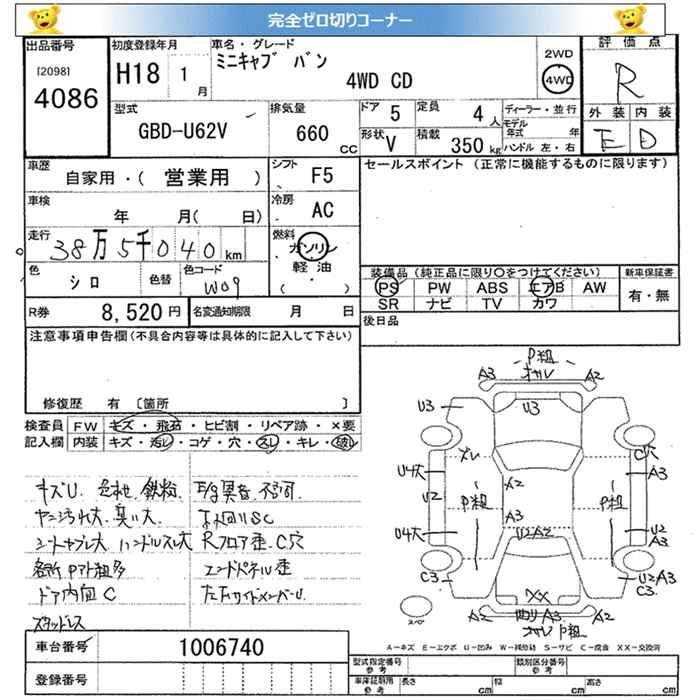 完全ゼロ切りコーナー
出品番号 初度登録年月 車名・グレード 評価点
[2098] 4086 H18 1月 ミニキャブ バン 4WD CD 2WD 4WD R
型式 排気量 ドア 5 定員 4人 ディーラー・並行 外装 内装
GBD-U62V 660cc 形状 V 積載 350kg モデル年式 年 E D
ハンドル 左・右
車歴 自家用・(営業用) シフト F5 セールスポイント (正常に機能するものに限ります)
車検 年 月( 日) 冷房 AC
走行 38万5千040km 燃料 ガソリン
軽油
色 シロ 色替 色コード W09 装備品 (純正品に限り○をつけてください) 新車保証書
PS PW ABS エアB AW 有・無
SR ナビ TV カワ
R券 8,520円 名変通知期限 月 日 後日品
注意事項申告欄(不具合内容等は具体的に記入して下さい)
修復歴 有 [箇所 ]
検査員 FW キズ・飛石・ヒビ割・リペア跡・×要
記入欄 内装 キズ・汚レ・コゲ・穴・スレ・キレ・破レ
キズU
ヤニ汚れ大 臭い大
ハンドルスレ大 Rフロア歪 C穴
ドア内面C
スタッドレス
車台番号 1006740
登録番号
P組
A3 A2
U3 U3
C穴
A3
U4大 A2
U2 P組 P組
A3
U4大 U2A2 U2 A3
C3 U2A3 C3
XX
A2 A3 A2
P組
スペア
A-キズ E-エクボ U-凹み W-補修跡 S-サビ C-腐食 XX-交換済
型式指定番号 参考 類別区分番号 参考
車庫証明用 参考 長さ cm 幅 cm 高さ cm